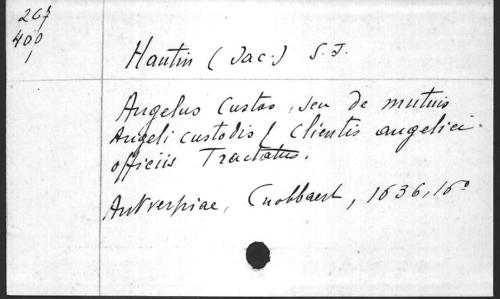 267
400
1
Hautin (Jac.) S.J.
Angelus Custos, seu de mutuis
Angeli custodis & clientis angelici
officiis Tractatus.
Antverpiae, Cnobbaert, 1636, 16°